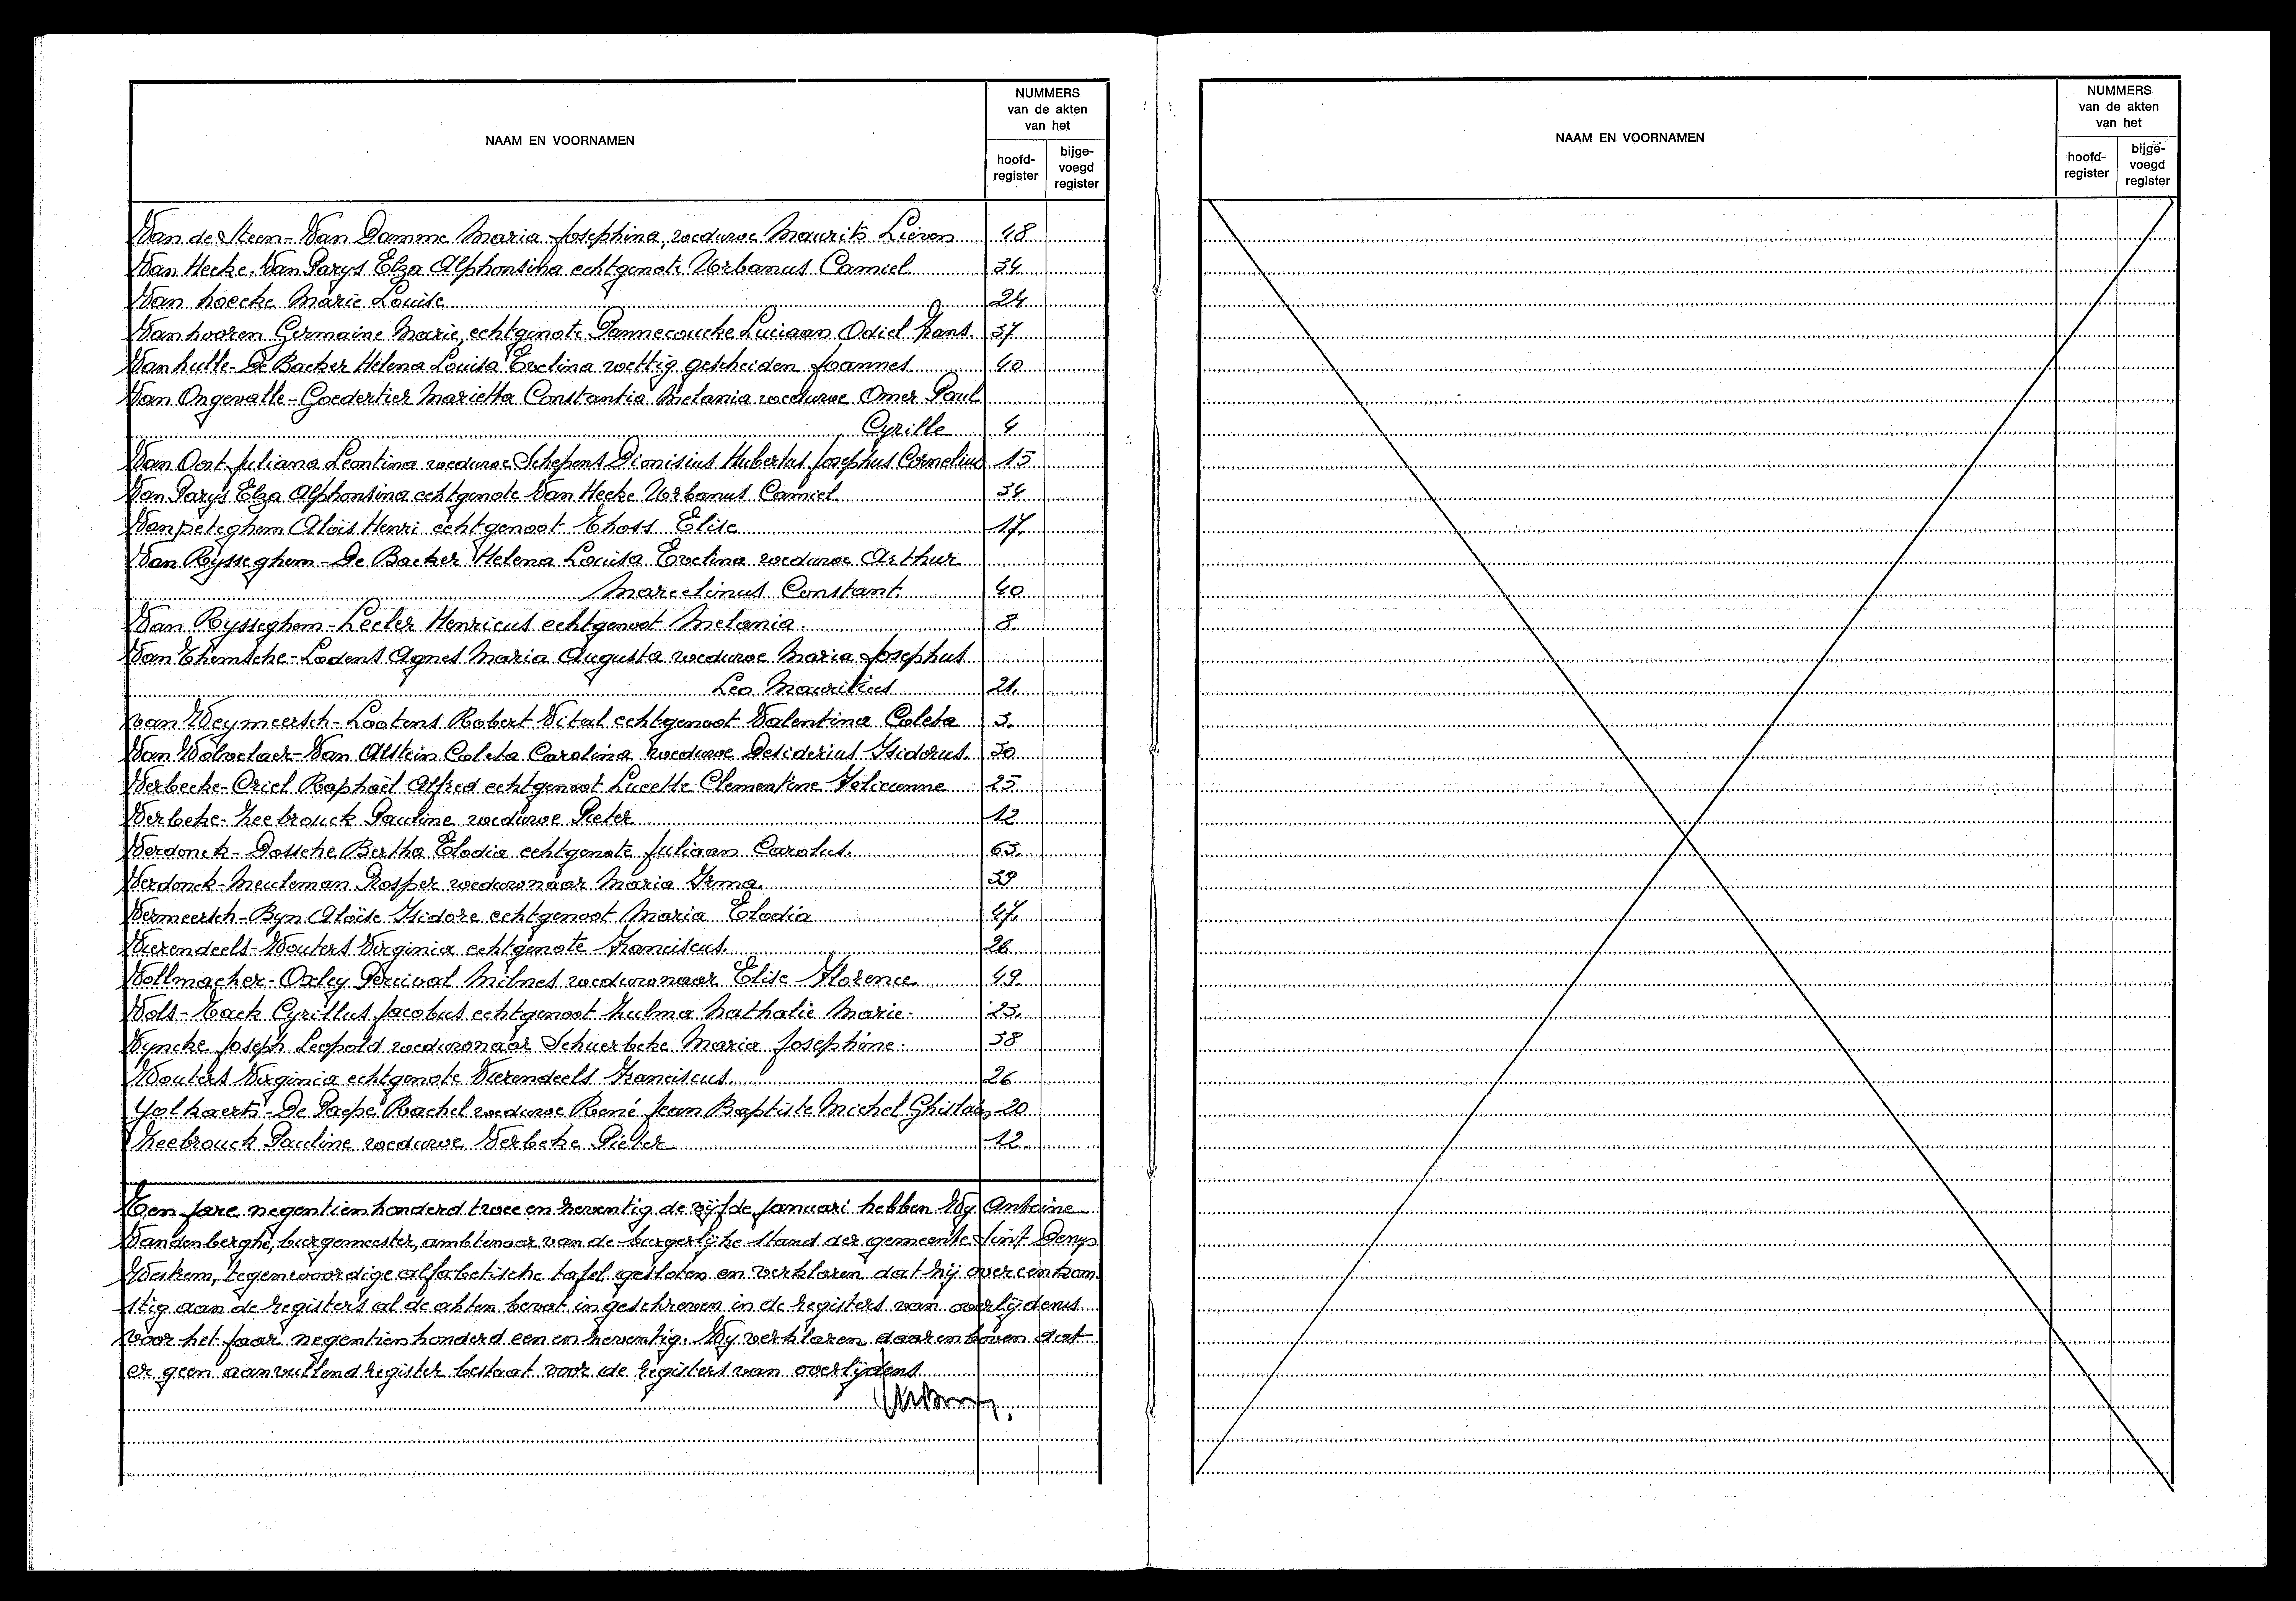 NAAM EN VOORNAMEN
NUMMERS
van de akten
van het
hoofd-
register
bijge-
voegd
register
Van de Steen-Van Damme Maria Josephina, weduwe Maurits Lieven 48
Van Hecke-Van Parys Elza Alphonsina echtgenote Urbanus Camiel 34
Van hoecke Marie Louise 24
Vanhooren Germaine Marie, echtgenote Pannecoucke Luciaan Odiel Frans. 37
Vanhulle-De Backer Helena Louisa Evelina wettig gescheiden Joannes 40
Van Ongevalle-Goedertier Marietta Constantia Melania weduwe Omer Paul
Cyrille 4
Van Oost Juliana Leontina weduwe Schepens Dionisius Hubertus Josephus Cornelius 15
Van Parys Elza Alphonsina echtgenote Van Hecke Urbanus Camiel 34
Vanpeteghem Aloïs Henri echtgenoot Thoss Elise 17.
Van Rysseghem-De Backer Helena Louisa Evelina weduwe Arthur
Marcelinus Constant. 40
Van Rysseghem-Lecler Henricus echtgenoot Melania. 8.
Van Themsche-Lodens Agnes Maria Augusta weduwe Maria Josephus
Leo Mauritius 21.
van Weymeersch-Lootens Robert Vital echtgenoot Valentina Coleta 3.
Van Wolvelaer-Van Alstein Coleta Carolina weduwe Desiderius Isidorus. 30
Verbecke-Criel Raphaël Alfred echtgenoot Lucette Clementine Felicienne 25
Verbeke-Zeebrouck Pauline weduwe Pieter 12
Verdonck-Dossche Bertha Elodia echtgenote Juliaan Carolus. 63.
Verdonck-Meuleman Prosper weduwnaar Maria Irma. 39
Vermeersch-Byn Aloïse Isidore echtgenoot Maria Elodia 47.
Vierendeels-Wouters Virginia echtgenote Franciscus. 26
Vollmacher-Oxley Percival Milnes weduwnaar Elise Florence 49.
Vols-Tack Cyrillus Jacobus echtgenoot Zulma Nathalie Marie. 23.
Vyncke Joseph Leopold weduwnaar Schuerbeke Maria Josephine. 38
Wouters Virginia echtgenote Vierendeels Franciscus. 26
Yolkaerts-De Paepe Rachel weduwe René Jean Baptiste Michel Ghislain 20
Zeebrouck Pauline weduwe Verbeke Pieter 12
Ten jare negentienhonderd twee en zeventig de vijfde januari hebben Wy Antoine
Vandenberghe, burgemeester, ambtenaar van de burgerlijke stand der gemeente Sint Denys
Westrem, tegenwoordige alfabetische tafel gesloten en verklaren dat hij overeenkom
stig aan de registers al de akten bevat ingeschreven in de registers van overlijdens
voor het jaar negentienhonderd een en zeventig. Wy verklaren daarenboven dat
er geen aanvullend register bestaat voor de registers van overlijdens
NAAM EN VOORNAMEN
NUMMERS
van de akten
van het
hoofd-
register
bijge-
voegd
register